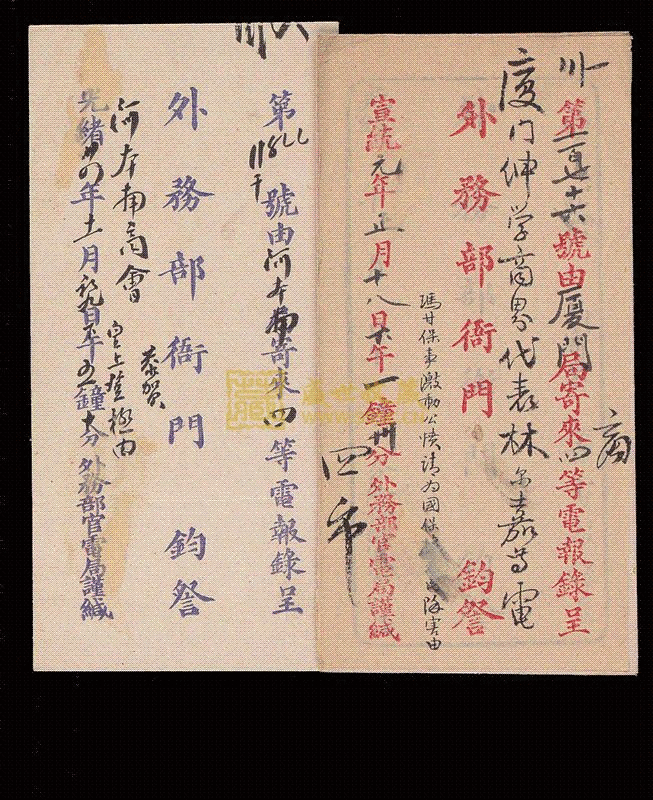 川
第一百七十六號由厦門局寄來四等電報錄呈
商
厦門紳学商界代表林尔嘉等電
外務部衙門 鈞詧
瑪甘保事激動公憤請為國保
除害由
宣統元年正月十八日 午一鐘 分外務部官電局謹緘
四
第 號由河本 寄來四等電報錄呈
外務部衙門 鈞詧
恭賀
皇上登極由
河本 商會
光緒 年十一月初九日 午 鐘十分外務部官電局謹緘